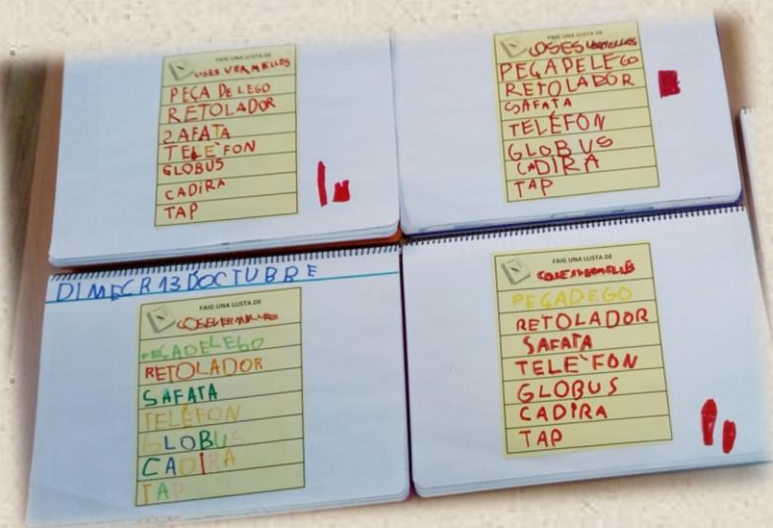 FAIG UNA LLISTA DE
COSES VERMELLES
PEÇA DE LEGO
RETOLADOR
SAFATA
TELÈFON
GLOBUS
CADIRA
TAP
FAIG UNA LLISTA DE
COSES VERMELLES
PEÇADELEGO
RETOLADOR
SAFATA
TELÉFON
GLOBUS
CADIRA
TAP
DIMECR 13 DOCTUBRE
FAIG UNA LLISTA DE
PEÇADELEGO
RETOLADOR
SAFATA
TELÉFON
GLOBUS
CADIRA
TAP
FAIG UNA LLISTA DE
PEÇADEGO
RETOLADOR
SAFATA
TELE`FON
GLOBUS
CADIRA
TAP